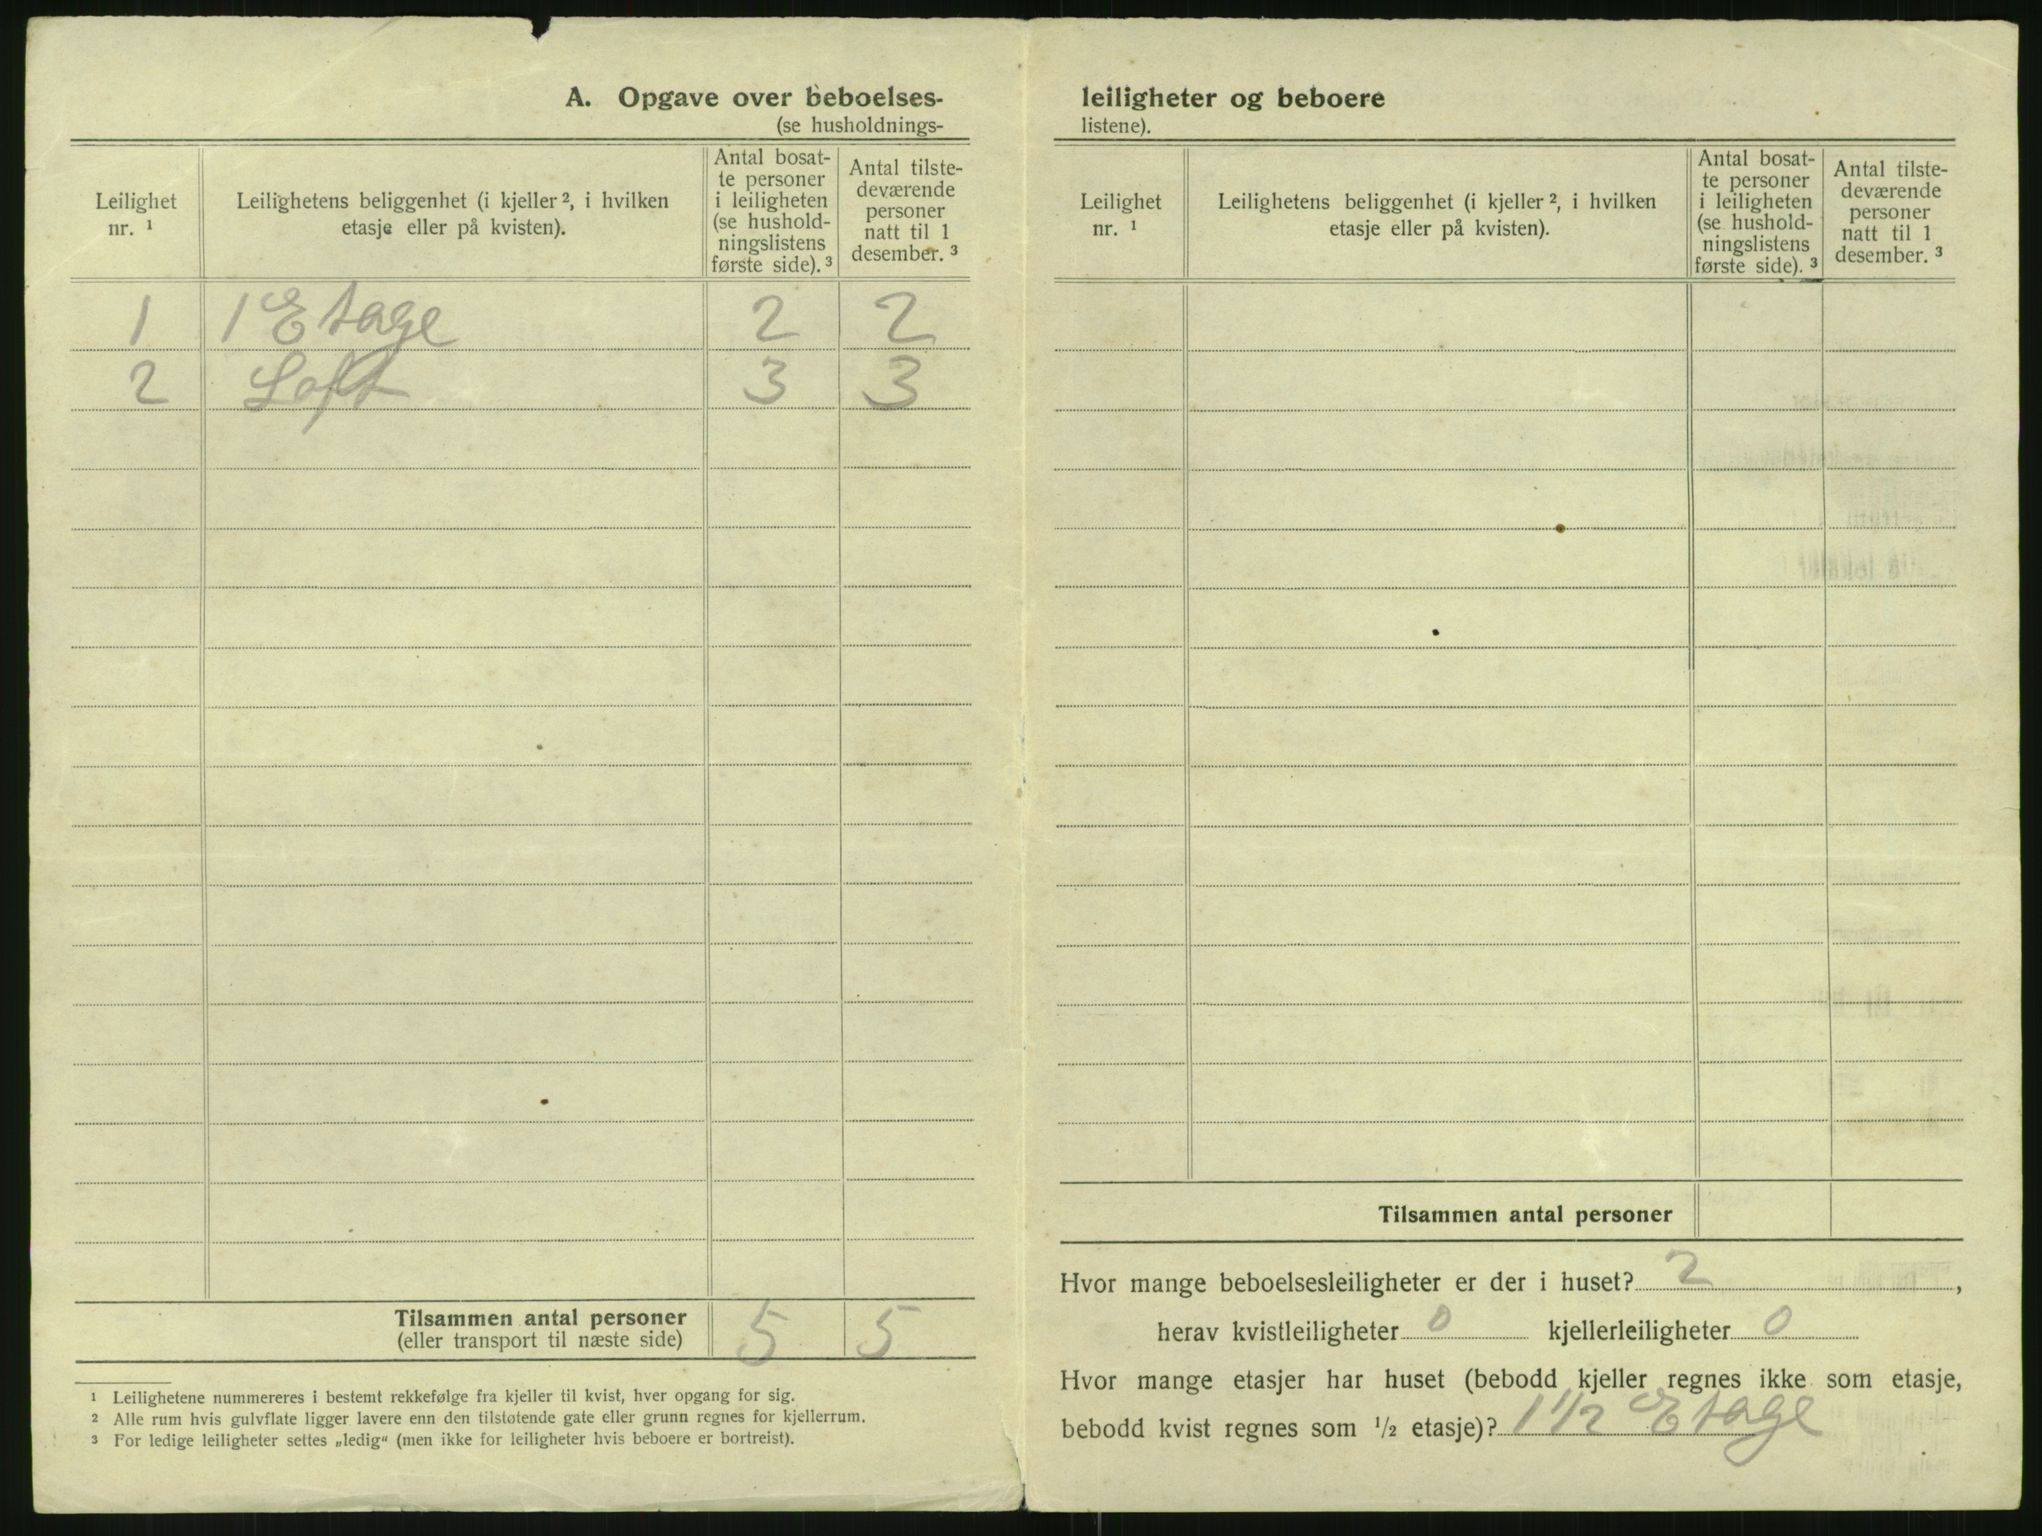 A. Opgave over beboelses-
(se husholdnings-
Leilighet nr. ¹
Leilighetens beliggenhet (i kjeller ², i hvilken etasje eller på kvisten).
Antal bosatte personer i leiligheten (se husholdningslistens første side). ³
Antal tilstedeværende personer natt til 1 desember. ³
1 1 Etage 2 2
2 Loft 3 3
Tilsammen antal personer 5 5
(eller transport til næste side)
¹ Leilighetene nummereres i bestemt rekkefølge fra kjeller til kvist, hver opgang for sig.
² Alle rum hvis gulvflate ligger lavere enn den tilstøtende gate eller grunn regnes for kjellerrum.
³ For ledige leiligheter settes „ledig“ (men ikke for leiligheter hvis beboere er bortreist).
leiligheter og beboere
listene).
Leilighet nr. ¹
Leilighetens beliggenhet (i kjeller ², i hvilken etasje eller på kvisten).
Antal bosatte personer i leiligheten (se husholdningslistens første side). ³
Antal tilstedeværende personer natt til 1 desember. ³
Tilsammen antal personer
Hvor mange beboelsesleiligheter er der i huset? 2 ,
herav kvistleiligheter 0 kjellerleiligheter 0
Hvor mange etasjer har huset (bebodd kjeller regnes ikke som etasje,
bebodd kvist regnes som ½ etasje)? 1 1/2 Etage